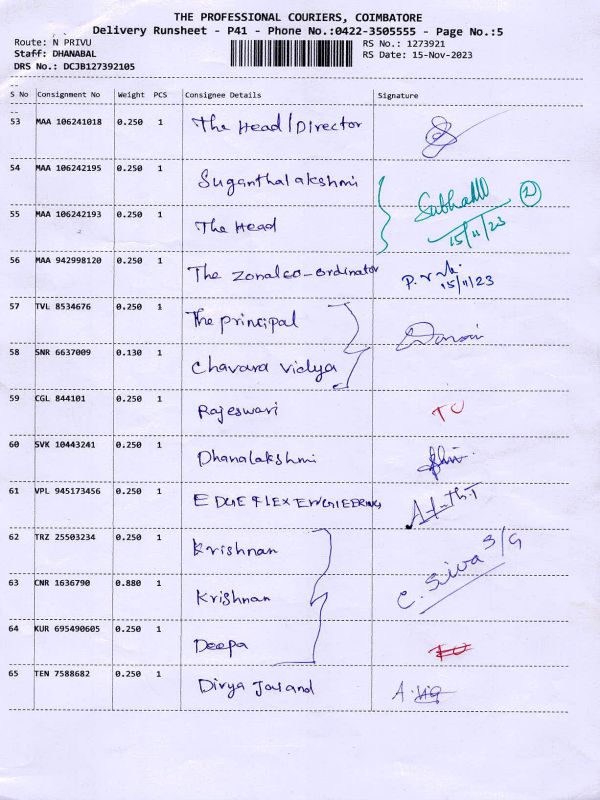 THE PROFESSIONAL COURIERS, COIMBATORE
Delivery Runsheet - P41 - Phone No.:0422-3505555 - Page No.:5
Route: N PRIVU RS No.: 1273921
Staff: DHANABAL RS Date: 15-Nov-2023
DRS No.: DCJB127392105
S No Consignment No Weight PCS Consignee Details Signature
53 MAA 106241018 0.250 1 The Head/Director
54 MAA 106242195 0.250 1 Suganthalakshmi
55 MAA 106242193 0.250 1 The Head 15/11/23
56 MAA 942998120 0.250 1 The Zonal co-ordinator 15/11/23
57 TVL 8534676 0.250 1 The principal
58 SNR 6637009 0.130 1 Chavara vidya
59 CGL 844101 0.250 1 Rajeswari
60 SVK 10443241 0.250 1 Dhanalakshmi
61 VPL 945173456 0.250 1 EDGE FLEX ENGIEERING
62 TRZ 25503234 0.250 1 Krishnan
63 CNR 1636790 0.880 1 Krishnan C. Siva S/G
64 KUR 695490605 0.250 1 Deepa
65 TEN 7588682 0.250 1 Divya